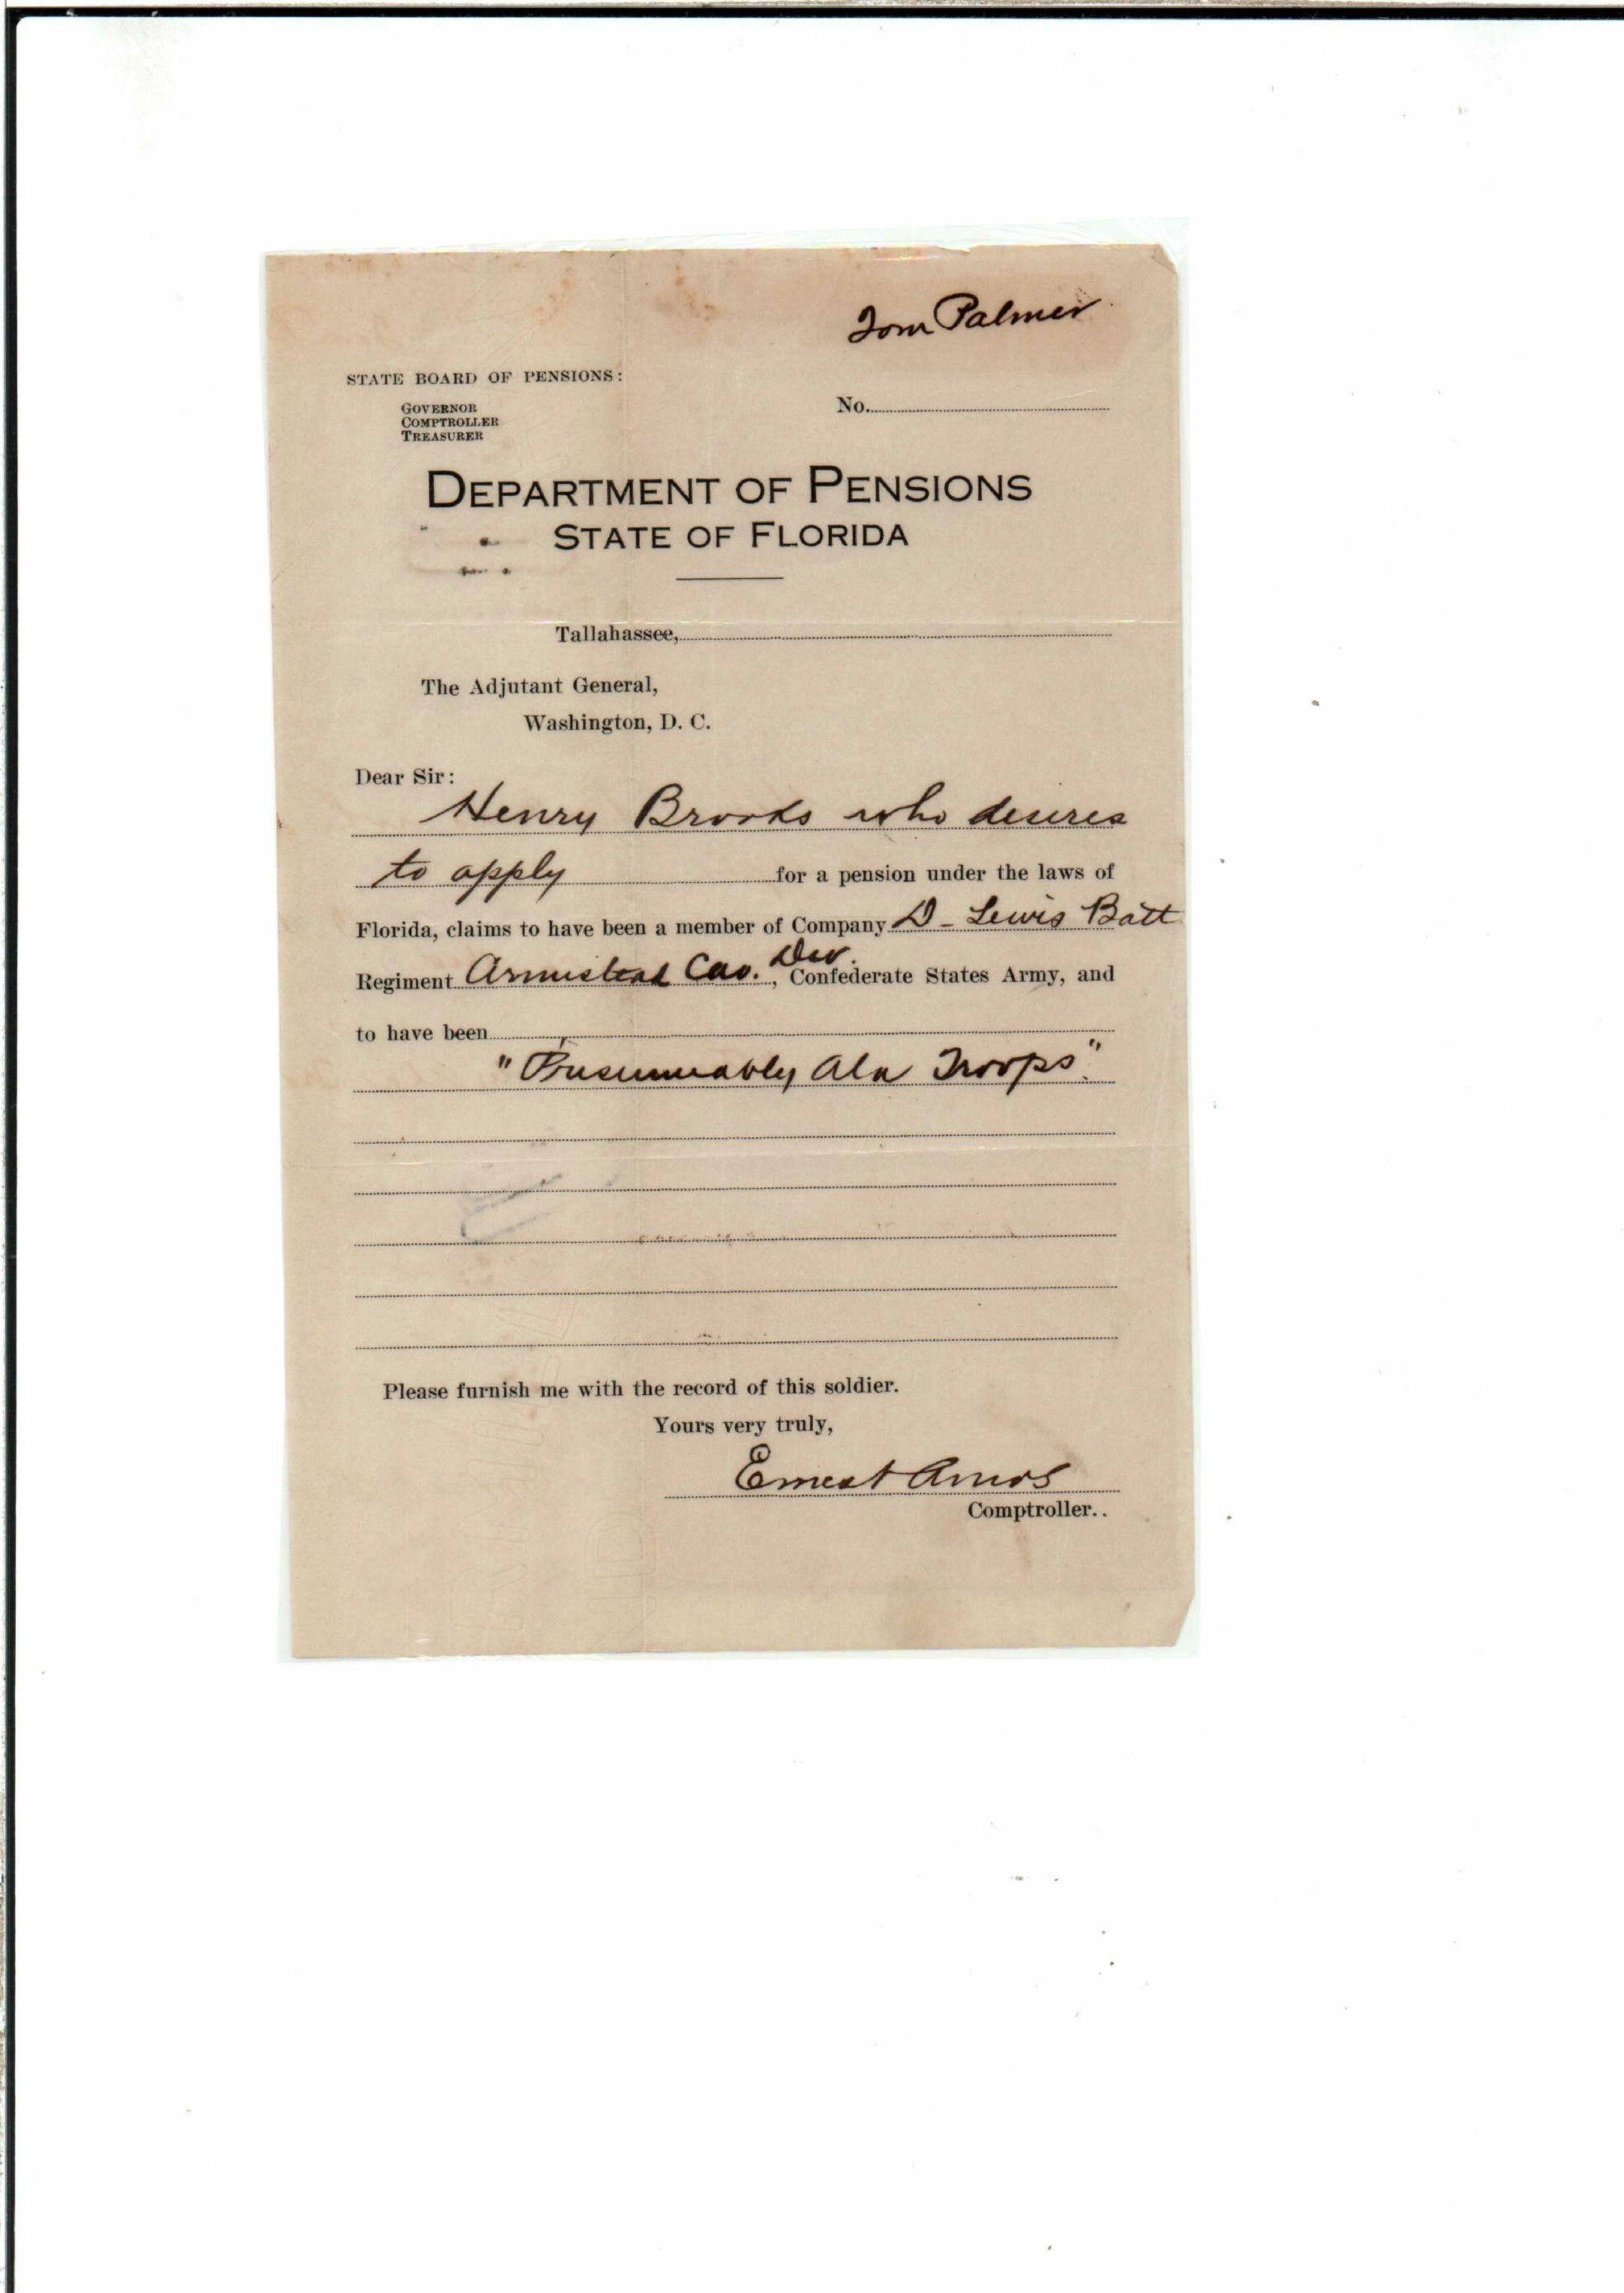 Tom Palmer
STATE BOARD OF PENSIONS:
GOVERNOR
COMPTROLLER
TREASURER
No.
DEPARTMENT OF PENSIONS
STATE OF FLORIDA
Tallahassee,
The Adjutant General,
Washington, D. C.
Dear Sir:
Henry Brooks who desires
to apply for a pension under the laws of
Florida, claims to have been a member of Company D - Lewis Batt
Regiment Armistead Cav. Div., Confederate States Army, and
to have been
"Presumeably Ala Troops".
Please furnish me with the record of this soldier.
Yours very truly,
Ernest Amos
Comptroller..